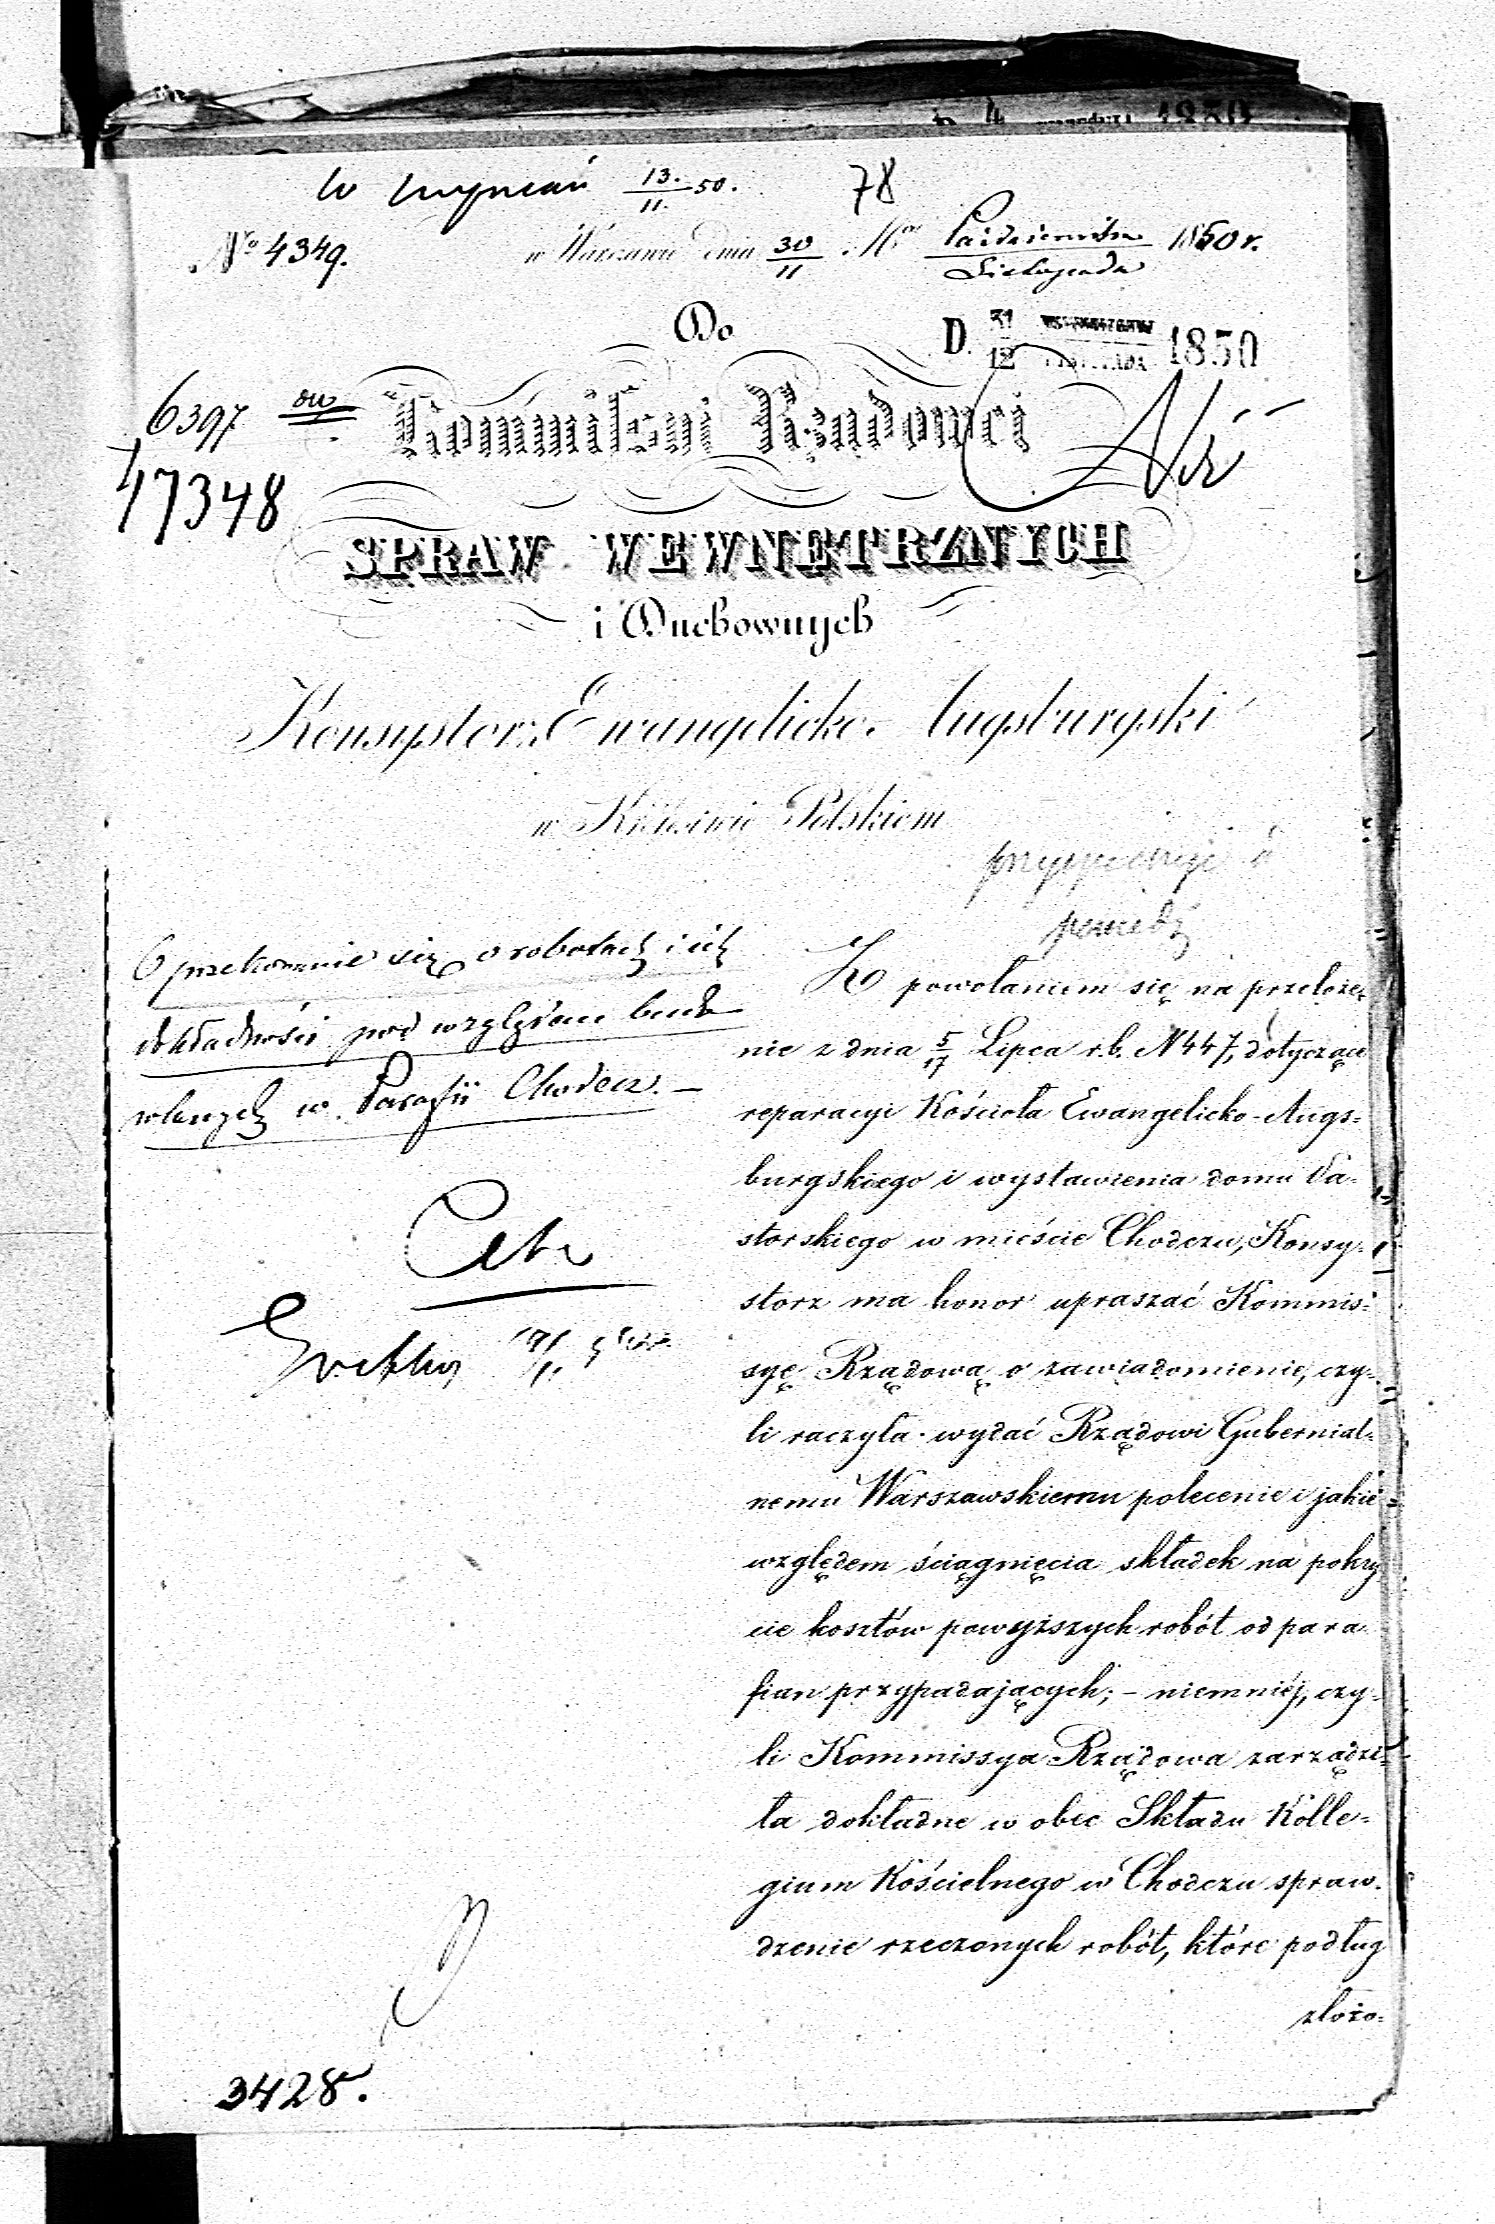 13.
11. 50.
78
№ 4349.
w Warszawie dnia 30/11 Października/Listopada 1850 r.
Do
D. 31/12 1850
6397
Kommissyi Rządowej
17348
SPRAW WEWNĘTRZNYCH
i Duchownych
Konsystorz Ewangelicko-Augsburgski
w Królestwie Polskiem
O przekonanie się o robotach i ich
dokładności pod względem budo
wlanych w Parafii Chodecz. –
Z powołaniem się na przełoże-
nie z dnia 5/17 Lipca r.b. N 447, dotyczące
reparacyi Kościoła Ewangelicko-Augs=
burgskiego i wystawienia domu Pa-
storskiego w mieście Chodczu, Konsy-
storz ma honor upraszać Kommis=
syę Rządową o zawiadomienie, czy-
li raczyła wydać Rządowi Gubernial=
nemu Warszawskiemu polecenie i jakie
względem ściągnięcia składek na pokry
cie kosztów powyższych robót od para
fian przypadających; – niemniéj, czy-
li Kommissya Rządowa zarządzi=
ła dokładne w obec Składu Kolle=
gium Kościelnego w Chodczu spraw-
dzenie rzeczonych robót, które podług
złożo=
3428.